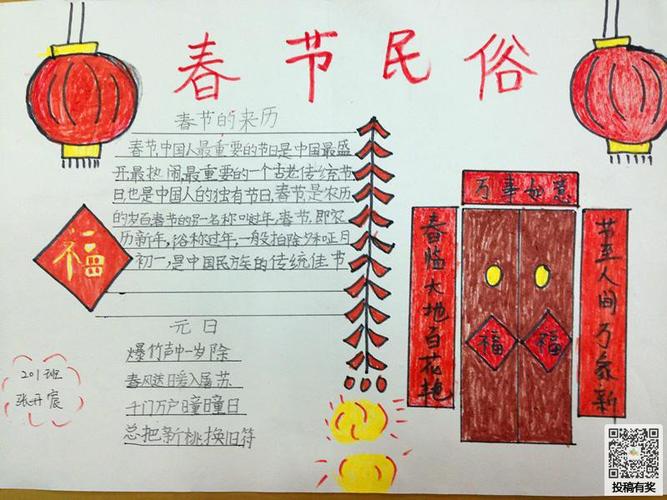 春节民俗
春节的来历
春节,中国人最重要的节日是中国最盛
开,最热闹,最重要的一个古老传统节
日,也是中国人的独有节日。春节,是农历
的岁百春节的另一名称叫过年,春节,即农
历新年,俗称过年,一般指除夕和正月
初一,是中国民族的传统佳节
福
元日
爆竹声中一岁除
春风送日暖入屠苏
千门万户曈曈日
总把新桃换旧符
201班
张丹宸
万事如意
春临大地百花艳
节至人间万象新
福
福
投稿有奖